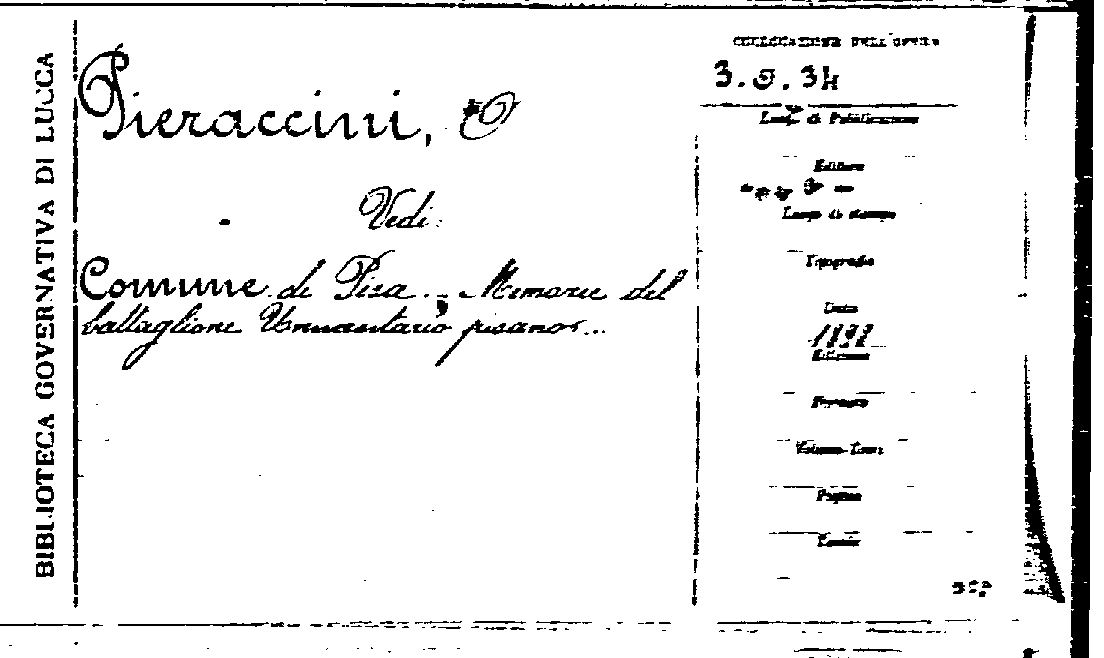 BIBLIOTECA GOVERNATIVA DI LUCCA
Pieraccini, O
Vedi:
Comune di Pisa. - Memorie del
battaglione pisano...
COLLOCAZIONE DELL'OPERA
3.O.34
Luogo di Pubblicazione
Editore
Luogo di stampa
Tipografia
Data
Edizione
Formato
Volume-Tomi
Pagine